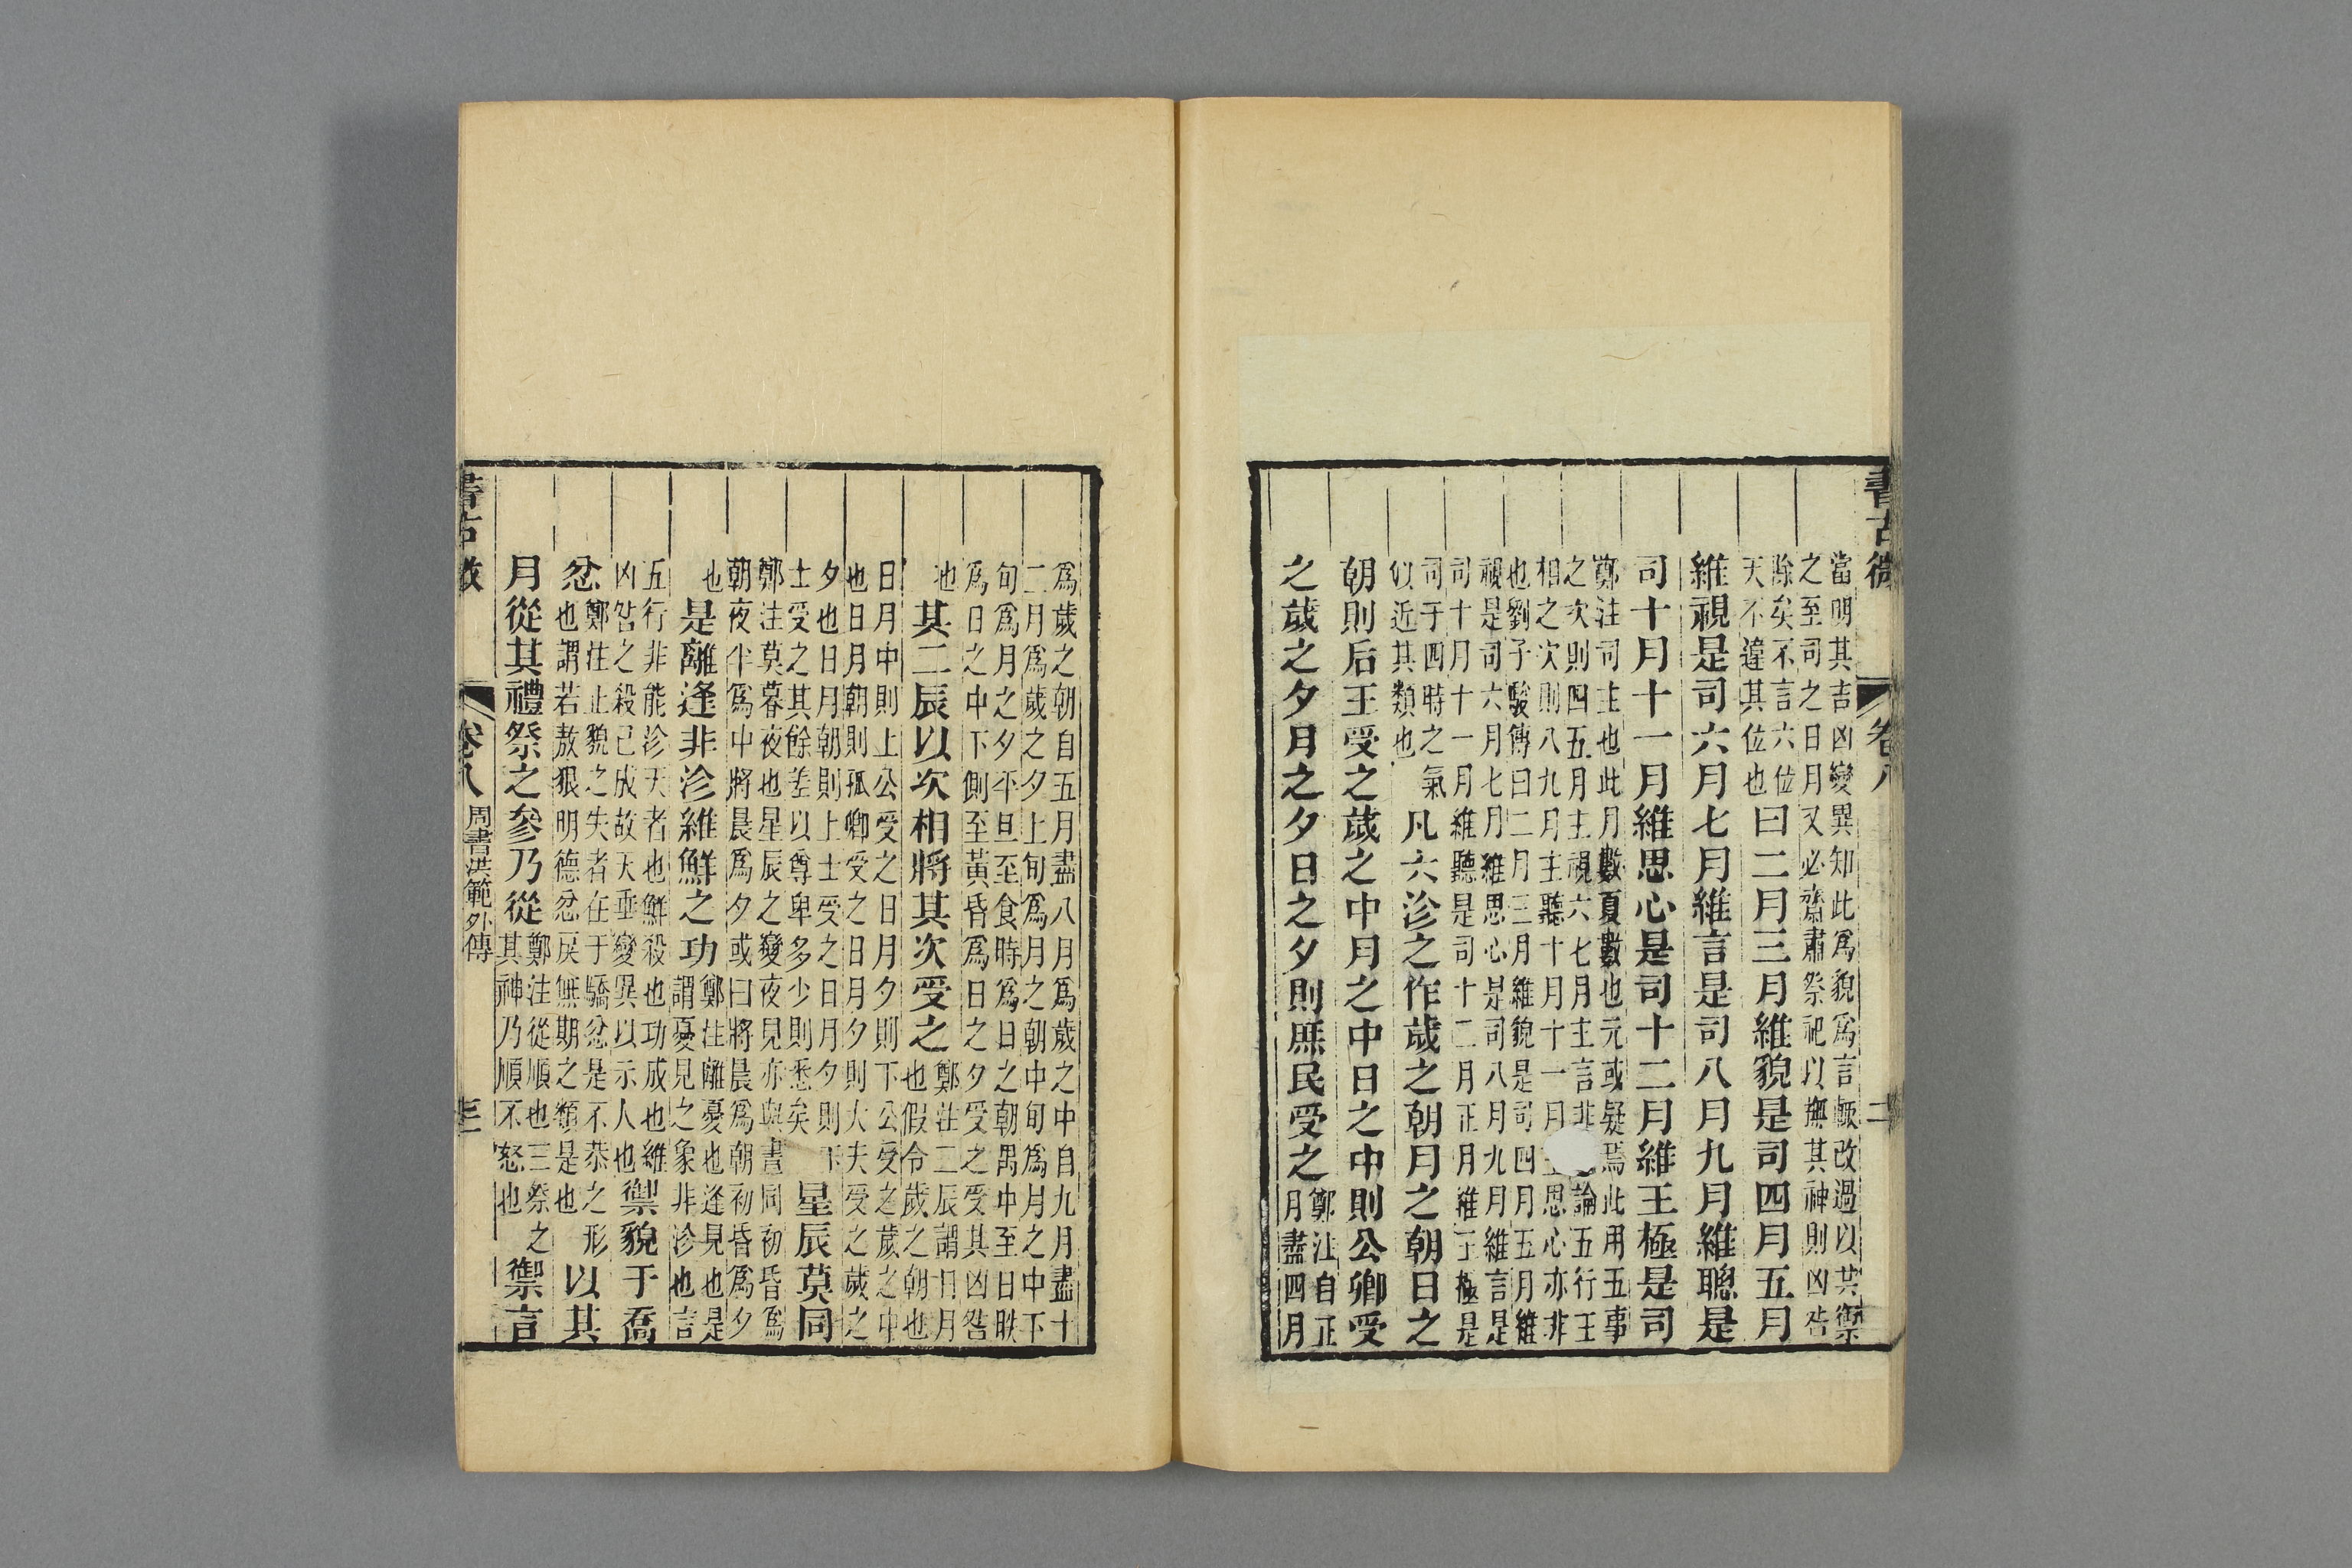 書古微 卷八 二
當明其吉凶變異知此爲貌爲言輒改過以其禦
之至司之日月又必齋肅祭祀以撫其神則凶咎
除矣不言六位
天不違其位也
曰二月三月維貌是司四月五月
維視是司六月七月維言是司八月九月維聰是
司十月十一月維思心是司十二月維王極是司
鄭注司主也此月數夏數也元或疑焉此用五事
之次則四五月主視六七月主言非 論五行王
相之次則八九月主聽十月十一月 思心亦非
也劉子駿傳曰二月三月維貌是司四月五月維
視是司六月七月維思心是司八月九月維言是
司十月十一月維聽是司十二月正月維王極是
司于四時之氣
似近其類也
凡六沴之作歲之朝月之朝日之
朝則后王受之歲之中月之中日之中則公卿受
之歲之夕月之夕日之夕則庶民受之
鄭注自正
月盡四月
爲歲之朝自五月盡八月爲歲之中自九月盡十
二月爲歲之夕上旬爲月之朝中旬爲月之中下
旬爲月之夕平旦至食時爲日之朝禺中至日昳
爲日之中下側至黃昏爲日之夕受之受其凶咎
也
其二辰以次相將其次受之
鄭注二辰謂日月
也假令歲之朝也
日月中則上公受之日月夕則下公受之歲之中
也日月朝則孤卿受之日月夕則大夫受之歲之
夕也日月朝則上士受之日月夕則下
士受之其餘差以尊卑多少則悉矣
星辰莫同
鄭注莫暮夜也星辰之變夜見亦與晝同初昏爲
朝夜半爲中將晨爲夕或曰將晨爲朝初昏爲夕
也
是離逢非沴維鮮之功
鄭注離憂也逢見也是
謂憂見之象非沴也言
五行非能沴天者也鮮殺也功成也維
凶咎之殺已成故天垂變異以示人也
禦貌于喬
忿
鄭注止貌之失者在于驕忿是不恭之形
也謂若敖狠明德忿戾無期之類是也
以其
月從其禮祭之參乃從
鄭注從順也三祭之
其神乃順不怒也
禦言
書古微 卷八 周書洪範外傳 三